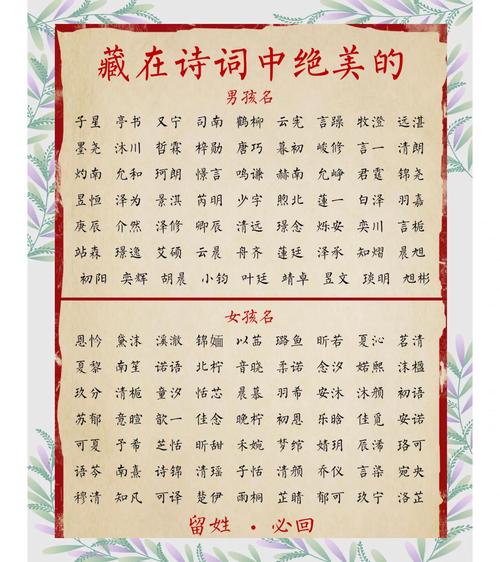 藏在诗词中绝美的
男孩名
子星 亭书 又宁 司南 鹤柳 云宪 言躁 牧澄 远湛
墨尧 沐川 哲霖 梓勋 唐巧 暮初 峻修 言一 清朗
灼南 允和 珂朗 憬言 鸣谦 赫南 允峥 君霆 锦尧
昱恒 泽为 景淇 芮明 少宇 煦北 蓬一 白泽 羽嘉
庚辰 介然 泽修 卿辰 清远 璟念 烁安 奕川 言栀
站森 璟逸 艾硕 云晨 舟齐 莲廷 泽承 知熠 晨旭
初阳 奕辉 胡晨 小钧 叶廷 靖卓 昱文 琰明 旭彬
女孩名
恩忴 黛沫 溪澈 锦婳 以茁 璐鱼 昕若 夏沁 茗清
夏黎 南笙 诺语 北柠 音晓 柔诺 念汐 婼熙 沫楹
玖分 清栀 童汐 恬芯 晨慕 羽希 安沐 沐颜 初语
苏郁 意暄 歆一 佳念 晚柠 初恩 乐晗 佳觅 安诺
可夏 予希 芝恬 昕甜 禾婉 梦绾 婧玥 辰浠 珞可
语芩 南熹 诗锦 清瑶 子恬 清颜 乔仪 言染 宛央
穆清 知凡 可译 楚伊 雨桐 芷晴 郁可 玖宁 洛芷
留姓·必回